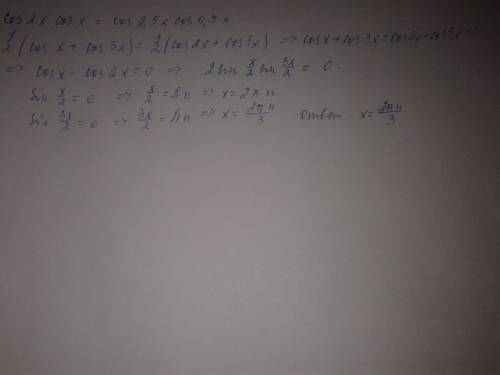 cos 2x cos x = cos 2,5x cos 0,5x
1/2 (cos x + cos 3x) = 1/2 (cos 2x + cos 3x) => cos x + cos 3x = cos 2x + cos 3x =>
=> cos x - cos 2x = 0 => 2 sin x/2 sin 3x/2 = 0.
sin x/2 = 0 => x/2 = πn => x = 2πn
sin 3x/2 = 0 => 3x/2 = πn => x = 2πn/3 ответ: x = 2πn/3